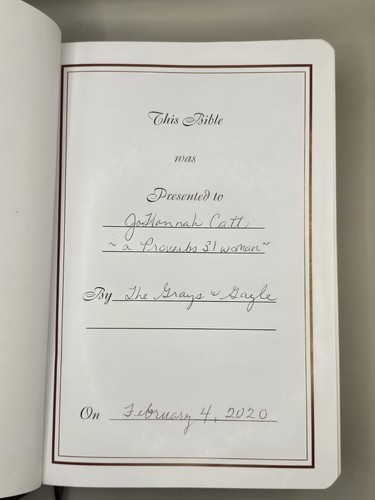 This Bible
was
Presented to
JoHannah Catt
~ a Proverbs 31 woman ~
By The Grays & Gayle
On February 4, 2020